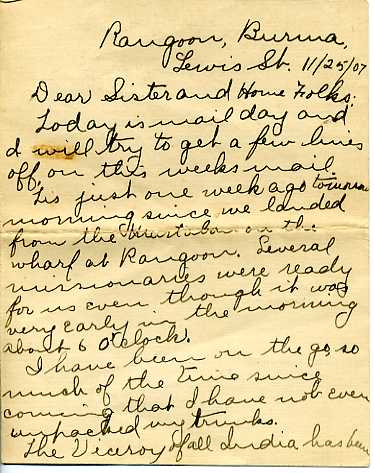 Rangoon, Burma,
Lewis St. 11/25/07
Dear Sister and Home Folks:
Today is mail day and
I will try to get a few lines
off, on this weeks mail.
Tis just one week ago tomorrow
morning since we landed
from the Martaban on the
wharf at Rangoon. Several
missionaries were ready
for us even though it was
very early in the morning
about 6 O'clock.
I have been on the go, so
much of the time since
coming that I have not even
unpacked my trunks.
The Viceroy of all India has been